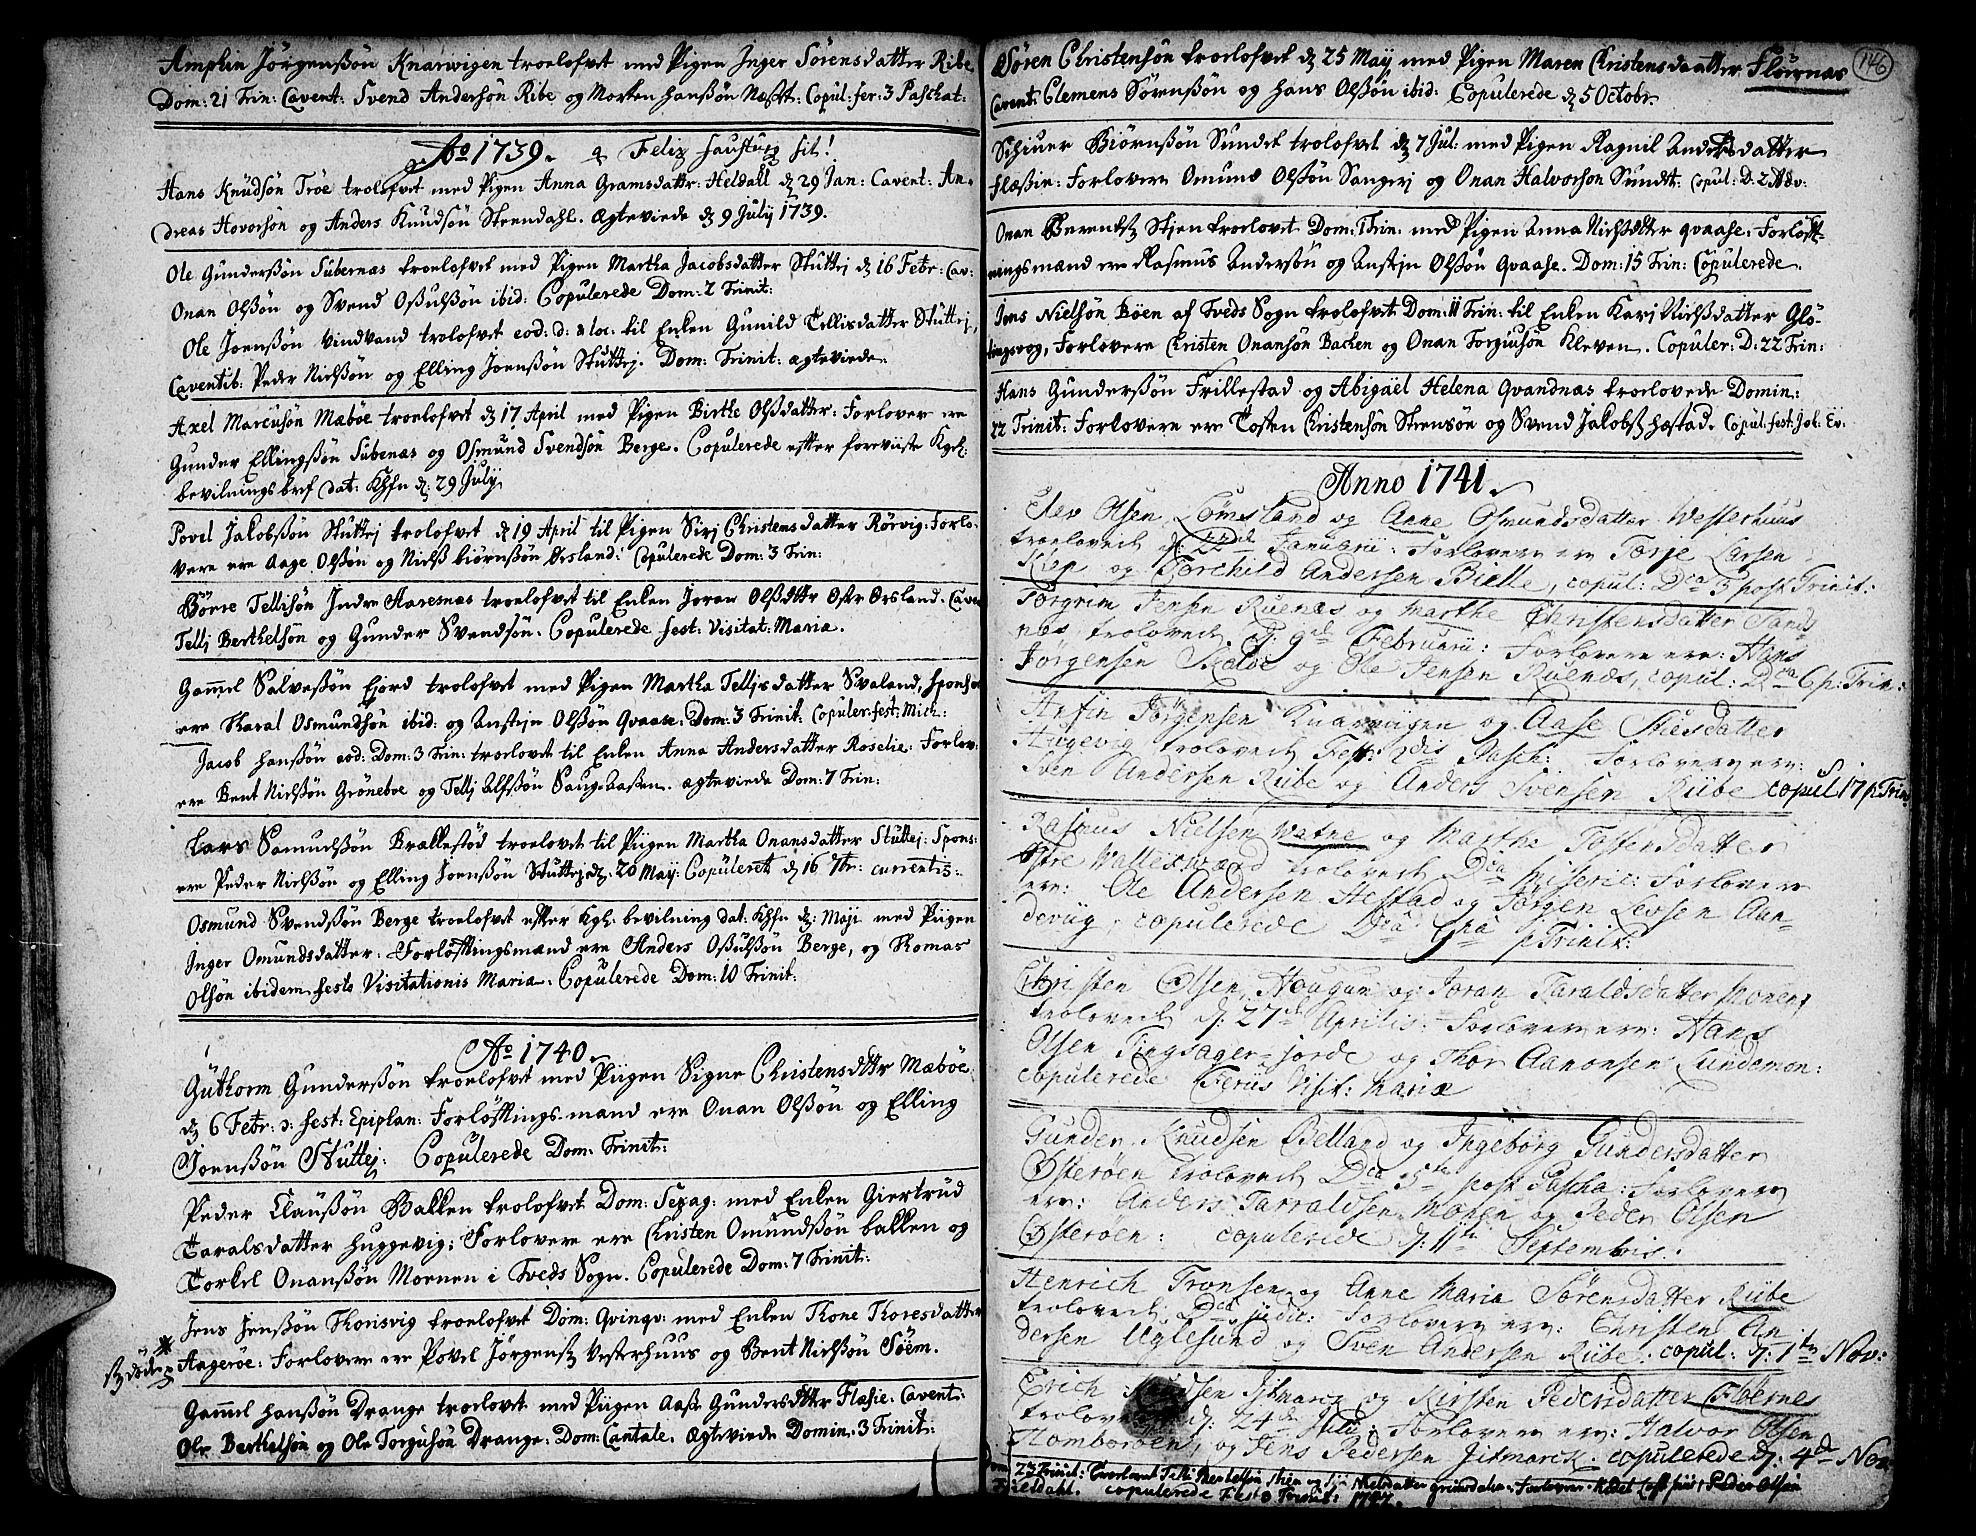 Amphin Jörgenßön Knarwigen troelofvet med Pigen Inger Sörensdatter Ribe
Dom: 21 Trin: Cavent: Svend Andersön Ribe og Morten Hanßön Copul: fer: 3 Paschat:
Ao 1739. Felix sit!
Hans Knudsön Tröe trolofvet med Pigen Anna Gramsdattr: Heldall d 29 Jan: Cavent: An-
dreas Hovorsön og Anders Knudsön Steendahl. Ægteviede d 9 Julij 1739.
Ole Gunderßön Tübernæs troelofvet med Pigen Martha Jacobsdatter Stuttej d 16 Febr: Cav:
Onan Olßön og Svend Oßulßön ibid: Copulerede Dom: 2 Trinit:
Ole Joenßön Vindvand trolofvet eod: d: & loc: til Enken Gunild Tellisdatter Stuttej,
Caventib: Peder Nielßön og Elling Joenßön Stuttej. Dom: Trinit: ægteviede.
Axel Marcusön Mæböe troelofvet d 17 April med Pigen Birthe Olßdatter: Forlovere ere
Gunder Ellingßön Tübenæs og Osmund Svendsön Berge. Copulerede efter foreviiste Kgl:
bevilnings bref dat: Khfn d: 29 July
Povel Jakobßön Stuttej trolofvet d 19 April til Pigen Sirj Christensdatter Rörvig: Forlo-
vere ere Aage Olßön og Nielß biörnßön Ørsland: Copulerede Dom: 3 Trin:
Börre Tellisön Indre Aaresnæs troelofvet til Enken Joran Olßdttr Ostr Ørsland. Cave
Tellj Berthelsön og Gunder Svendsön. Copulerede fest: Visitat: Maria.
Gamel Salveßön Fjord trolofvet med Pigen Martha Telljsdatter Svaland, Spons
ere Haral Osmundsön ibid: og Anstejn Olßön Qvaase: Dom: 3 Trinit: Copuler: fest: Mich:
Jacob Hanßön eod: Dom: 3 Trin: troelovet til Enken Anna Andersdatter Roselie. Forlov:
ere Bent Nielßön Gröneboe og Tellj Alfßön Saug-Aasen. ægteviede Dom: 7 Trin:
Lars Samuelßön Brællestöd troelovet til Piigen Martha Onansdatter Stuttej: Spons:
ere Peder Nielßön og Elling Joenßön Stuttej d: 20 May: Copuleret d 16 7br: currentis:
Osmund Svendßön Berge troelofvet efter Kgl: bevilning dat: Khfn d: Maji med Piigen
Inger Omundsdatter: Forlöftingsmænd ere Anders Oßulßön Berge, og Thomas
Olsön ibidem festo Visitationis Maria. Copulerede Dom: 10 Trinit:
Ao 1740.
Güthorm Gunderßön troelofvet med Piigen Signe Christensdttr Mæböe
d 6 Febr: fest: Epiphan: Forlöftings-mænd ere Onan Olßön og Elling
Joenßön Stuttej: Copulerede Dom: Trinit:
Peder Claußön Bakken trolofvet Dom: Sexag: med Enken Giertrüd
Taralsdatter Huggevig: Forlovere ere Christen Omundßön bakken og
Torkel Onanßön Moenen i Tveds Sogn. Copulerede Dom: 7 Trinit:
Jens Jenßön Thorisvig troelofvet Dom: Qvinqv: med Enken Thone Thoresdatter
Aagerøe: Forlovere ere Povel Jörgens Vesterhuus og Bent Nielßön Söem.
Gamel Hanßön Drange troelovet med Piigen Aaße Gundersdttr Flæsie: Cavent:
Ole Berthelsön og Ole Torgusön Drange: Dom: Cantate. Ægteviede Domin: 3 Trinit:
146
Sören Christensön troelofvet d 25 May med Pigen Maren Christensdaatter Floernæs
Cavent: Clemens Sörenßön og Hans Olßön ibid: Copulerede d 5 Octobr.
Schiuer Biörnßön Sundet trolofvet d 7 Jul: med Pigen Ragnil Andersdatter
Flæßin: Forlovere Omund Olßön Sangerj og Onan Halvorsön Sundt. Copul: D: 2 Adv:
Onan Berents Stjen troelovet Dom: 1 Trin: med Pigen Anna Nielßdtter Qvaase: Forlöft-
ningsmænd ere Rasmus Andersön og Anstejn Olßön Qvaase. Dom: 15 Trin: Copulerede.
Jens Nielsön Böen af Tveds Sogn trolofvet Dom: 11 Trin: til Enken Karj Nielßdatter Glö-
tingsvog, Forlovere Christen Onansön Bacten og Onan Torgiusön Kleven. Copuler: D: 22 Trin:
Hans Gunderßön Frillestad og Abigäel Helena Qvandnæs troelovede Domin:
22 Trinit: Forlovere ere Tosten Christensön Strensöe og Svend Jakobs Hæstad. Copul: fest: Joh: Ev:
Anno 1741.
Elev Olsen Lömsland og Anne Osmundsdatter Westerhuus
troelovede d: 22de Januarii: Forlovere ere Torje Larsen
Kiep og Torchild Andersen Bielle, copul: Dca 3 post Trinit:
Torgrim Jensen Ruenæs og Marthe Christensdatter Tands-
næs, trolovede D: 9de Februarii: Forlovere ere: Hans
Jörgensen og Ole Jensen Ruenæs, copul: Dca 6 p: Trin:
Anfin Jörgensen Knarwiigen og Aase
Hugevig trolovede Fest: 2dis Pasch: Forlovere ere:
Sven Andersen Riibe og Anders Svensen Riibe copul 17 p Trin
Rasmus Nielsen Watne og Marthe Tostensdatter
trolovede Dca Miseric: Forlovere
ere: Ole Andersen Hestad og Jörgen Levsen Aun-
devüg, copulerede Dca 6ta p Trinit:
Christen Olsen Hougum og Joran Taraldsdatter Monen,
trolovede D: 27de Aprilis: Forlovere ere: Hans
Olsen Tingsager-jorde og Thor Aanonsen Lundemon:
copulerede Feriis Visit: Mariæ
Gunder Knudsen Belland og Ingeborg Gundersdatter
Østeröen trolovede Dca 5ta post Pascha: Forlovere
ere: Anders Tarraldsen Monen og Peder Olsen
Østeröen: copulerede D: 11te Septembris.
Henrich Tronsen og Anne Maria Sörensdatter Riibe
trolovede Dca judic: Forlovere ere: Christen An-
dersen Uglesund og Sven Andersen Riibe. copul: D: 1te Nov:
Erich Jitmarck og Kirsten Pedersdatter Floernes
trolovede D: 24de Julii: Forlovere ere: Halvor Olsen
Homboröen, og Jens Pedersen Jitmarck. copulerede D: 4de Nov
Dom 23 Trinit: Troelovet og Nielsdatter Forlovere Peder Olsön
copulerede Fest Trinit: 1742.